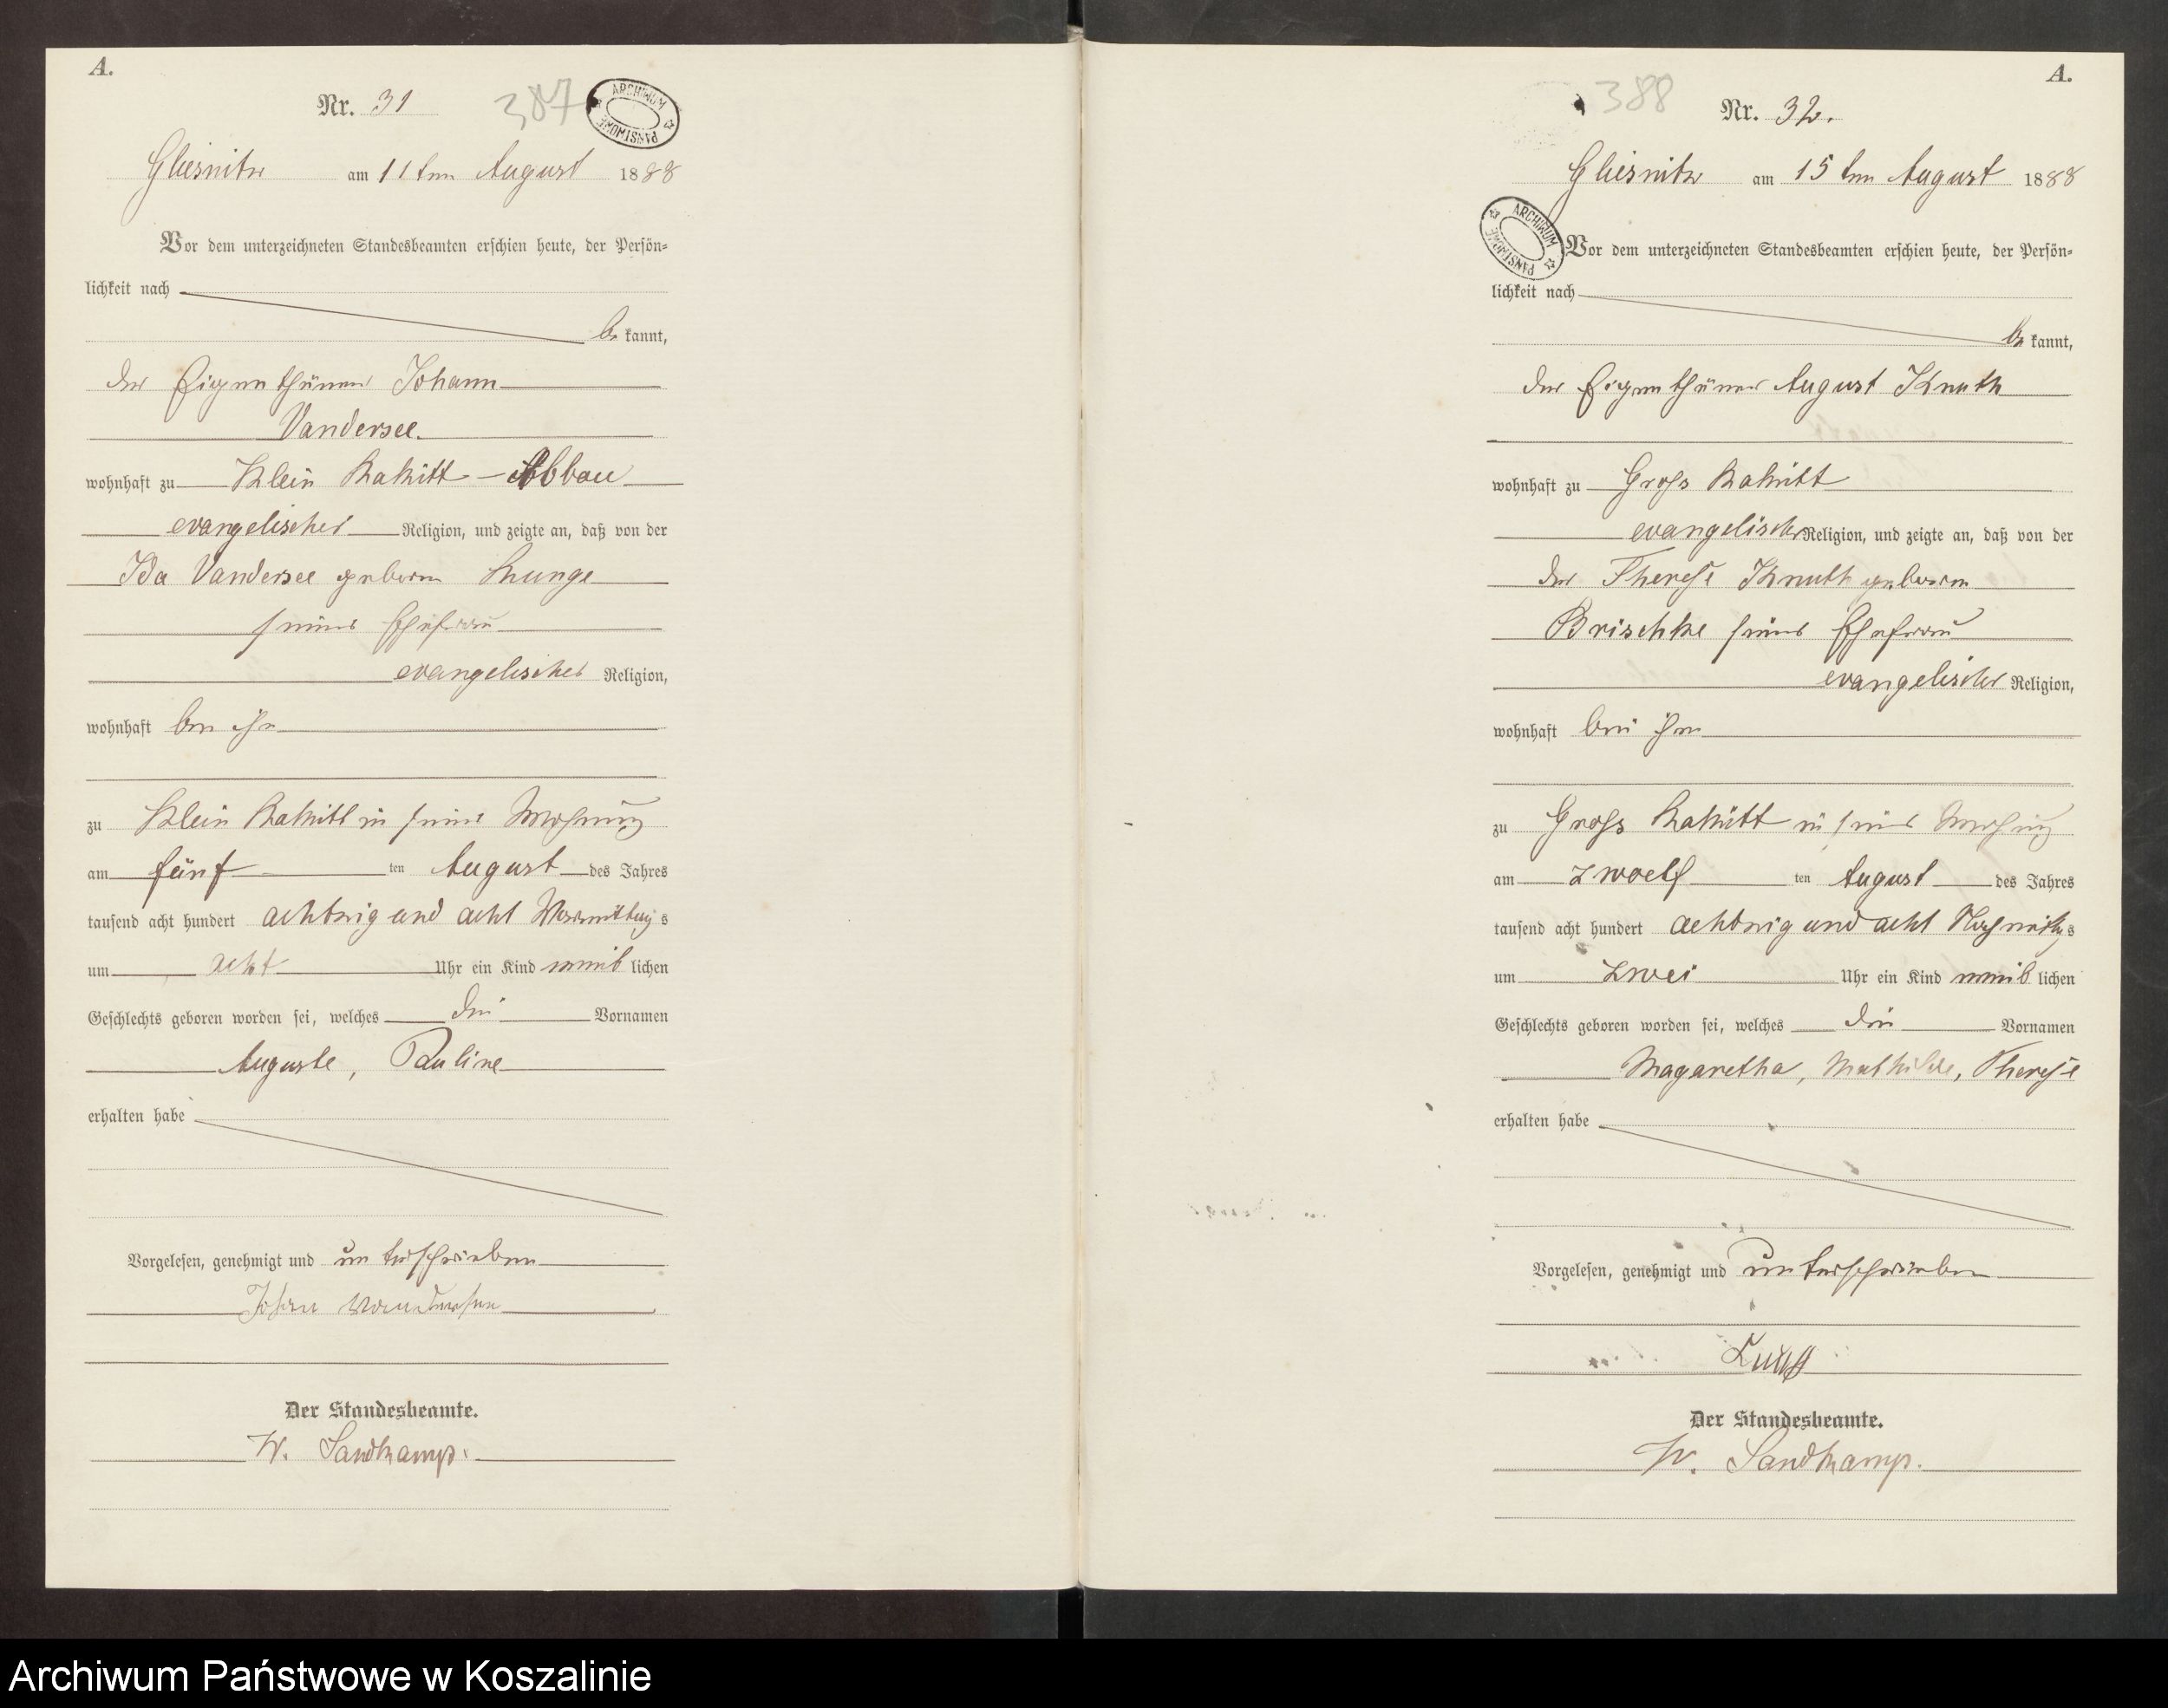 A.
Nr. 31
387
ARCHIWUM PAŃSTWOWE
Gliesnitz am 11 ten August 1888
Vor dem unterzeichneten Standesbeamten erschien heute, der Persön-
lichkeit nach
be kannt,
der Eigenthümer Johann
Vandersee
wohnhaft zu Klein Rakitt - Abbau
evangelischer Religion, und zeigte an, daß von der
Ida Vandersee geboren Runge
seiner Ehefrau
evangelischer Religion,
wohnhaft bei ihm
zu Klein Rakitt in seiner Wohnung
am fünf ten August des Jahres
tausend acht hundert achtzig und acht Vormittags
um acht Uhr ein Kind weib lichen
Geschlechts geboren worden sei, welches die Vornamen
Auguste, Pauline
erhalten habe
Vorgelesen, genehmigt und unterschrieben
Johann Vandersee
Der Standesbeamte.
W. Sandkamp.
A.
388
Nr. 32.
Gliesnitz am 15 ten August 1888
ARCHIWUM PAŃSTWOWE
Vor dem unterzeichneten Standesbeamten erschien heute, der Persön-
lichkeit nach
be kannt,
der Eigenthümer August Knuth
wohnhaft zu Gross Rakitt
evangelischer Religion, und zeigte an, daß von der
der Therese Knuth geboren
Brischke seiner Ehefrau
evangelischer Religion,
wohnhaft bei ihm
zu Gross Rakitt in seiner Wohnung
am zwoelf ten August des Jahres
tausend acht hundert achtzig und acht Nachmittags
um zwei Uhr ein Kind weib lichen
Geschlechts geboren worden sei, welches die Vornamen
Magaretha, Mathilde, Therese
erhalten habe
Vorgelesen, genehmigt und unterschrieben
Der Standesbeamte.
W. Sandkamp.
Archiwum Państwowe w Koszalinie